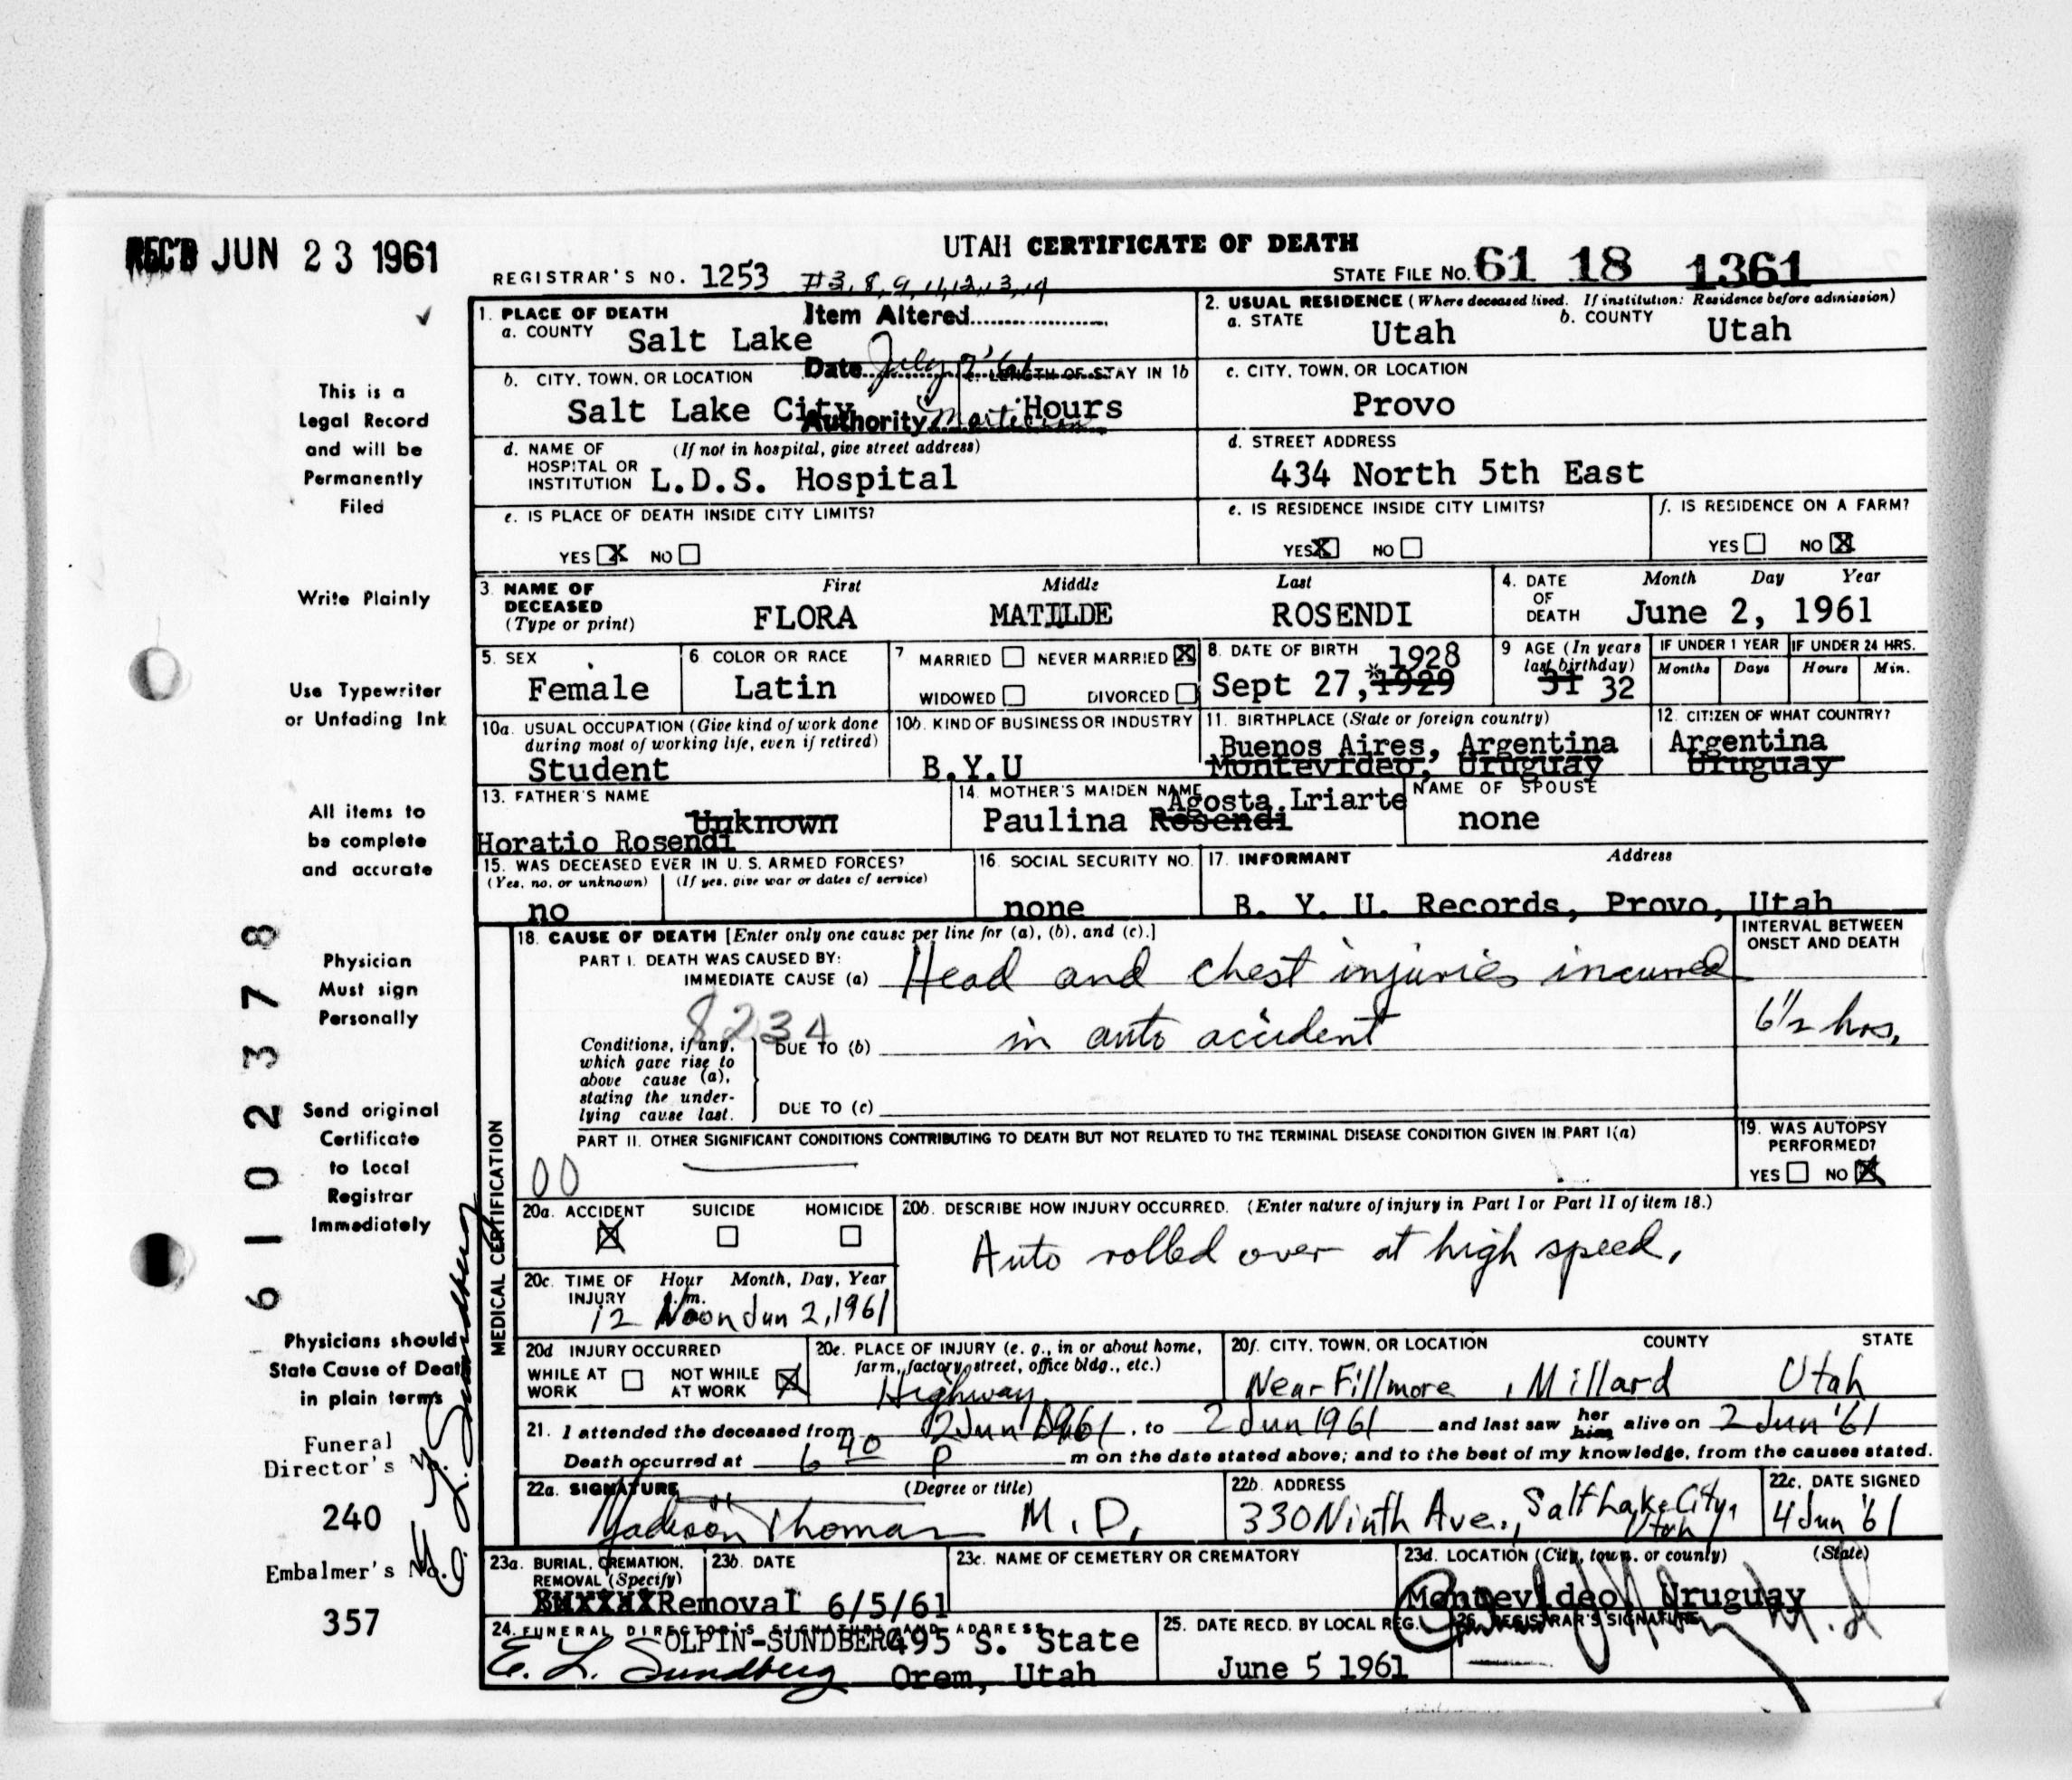 REC'D JUN 23 1961
UTAH CERTIFICATE OF DEATH
REGISTRAR'S NO. 1253 #3, 8, 9, 11, 12, 13, 14
STATE FILE NO. 61 18 1361
This is a
Legal Record
and will be
Permanently
Filed
Write Plainly
Use Typewriter
or Unfading Ink
All items to
be complete
and accurate
Physician
Must sign
Personally
Send original
Certificate
to Local
Registrar
Immediately
Physicians should
State Cause of Death
in plain terms
Funeral
Director's No.
240
Embalmer's No.
357
E. L. Sundberg
6102378
Item Altered
Date July 7 '61
Authority Mortician
1. PLACE OF DEATH
a. COUNTY Salt Lake
b. CITY, TOWN, OR LOCATION
Salt Lake City
LENGTH OF STAY IN 1b
Hours
d. NAME OF HOSPITAL OR INSTITUTION (If not in hospital, give street address)
L.D.S. Hospital
e. IS PLACE OF DEATH INSIDE CITY LIMITS?
YES X NO
2. USUAL RESIDENCE (Where deceased lived. If institution: Residence before admission)
a. STATE Utah b. COUNTY Utah
c. CITY, TOWN, OR LOCATION
Provo
d. STREET ADDRESS
434 North 5th East
e. IS RESIDENCE INSIDE CITY LIMITS?
YES X NO
f. IS RESIDENCE ON A FARM?
YES NO X
3. NAME OF DECEASED (Type or print)
First Middle Last
FLORA MATILDE ROSENDI
4. DATE OF DEATH Month Day Year
June 2, 1961
5. SEX
Female
6. COLOR OR RACE
Latin
7 MARRIED NEVER MARRIED X
WIDOWED DIVORCED
8. DATE OF BIRTH 1928
Sept 27, *1929
9 AGE (In years last birthday)
31 32
IF UNDER 1 YEAR
Months Days
IF UNDER 24 HRS.
Hours Min.
10a. USUAL OCCUPATION (Give kind of work done during most of working life, even if retired)
Student
10b. KIND OF BUSINESS OR INDUSTRY
B.Y.U
11. BIRTHPLACE (State or foreign country)
Buenos Aires, Argentina
Montevideo, Uruguay
12. CITIZEN OF WHAT COUNTRY?
Argentina
Uruguay
13. FATHER'S NAME
Unknown
Horatio Rosendi
14. MOTHER'S MAIDEN NAME
Agosta Lriarte
Paulina Rosendi
NAME OF SPOUSE
none
15. WAS DECEASED EVER IN U.S. ARMED FORCES?
(Yes, no, or unknown) (If yes, give war or dates of service)
no
16. SOCIAL SECURITY NO.
none
17. INFORMANT Address
B. Y. U. Records, Provo, Utah
MEDICAL CERTIFICATION
18. CAUSE OF DEATH [Enter only one cause per line for (a), (b), and (c).]
PART I. DEATH WAS CAUSED BY:
IMMEDIATE CAUSE (a) Head and chest injuries incurred
8234
Conditions, if any, which gave rise to above cause (a), stating the underlying cause last.
DUE TO (b) in auto accident
DUE TO (c)
INTERVAL BETWEEN ONSET AND DEATH
6 1/2 hrs.
PART II. OTHER SIGNIFICANT CONDITIONS CONTRIBUTING TO DEATH BUT NOT RELATED TO THE TERMINAL DISEASE CONDITION GIVEN IN PART I(a)
00
19. WAS AUTOPSY PERFORMED?
YES NO X
20a. ACCIDENT X SUICIDE HOMICIDE
20b. DESCRIBE HOW INJURY OCCURRED. (Enter nature of injury in Part I or Part II of item 18.)
Auto rolled over at high speed.
20c. TIME OF INJURY Hour Month, Day, Year
12 Noon Jun 2, 1961
20d INJURY OCCURRED
WHILE AT WORK NOT WHILE AT WORK X
20e. PLACE OF INJURY (e. g., in or about home, farm, factory, street, office bldg., etc.)
Highway
20f. CITY, TOWN, OR LOCATION COUNTY STATE
Near Fillmore, Millard Utah
21. I attended the deceased from 2 Jun 1961, to 2 Jun 1961 and last saw her him alive on 2 Jun '61
Death occurred at 6 40 P m on the date stated above; and to the best of my knowledge, from the causes stated.
22a. SIGNATURE (Degree or title)
Madison Thomas M.D.
22b. ADDRESS
330 Ninth Ave., Salt Lake City, Utah
22c. DATE SIGNED
4 Jun '61
23a. BURIAL, CREMATION, REMOVAL (Specify)
Removal
23b. DATE
6/5/61
23c. NAME OF CEMETERY OR CREMATORY
23d. LOCATION (City, town, or county) (State)
Montevideo, Uruguay
24. FUNERAL DIRECTOR'S SIGNATURE AND ADDRESS
OLPIN-SUNDBERG 495 S. State
E. L. Sundberg Orem, Utah
25. DATE RECD. BY LOCAL REG.
June 5 1961
26. REGISTRAR'S SIGNATURE